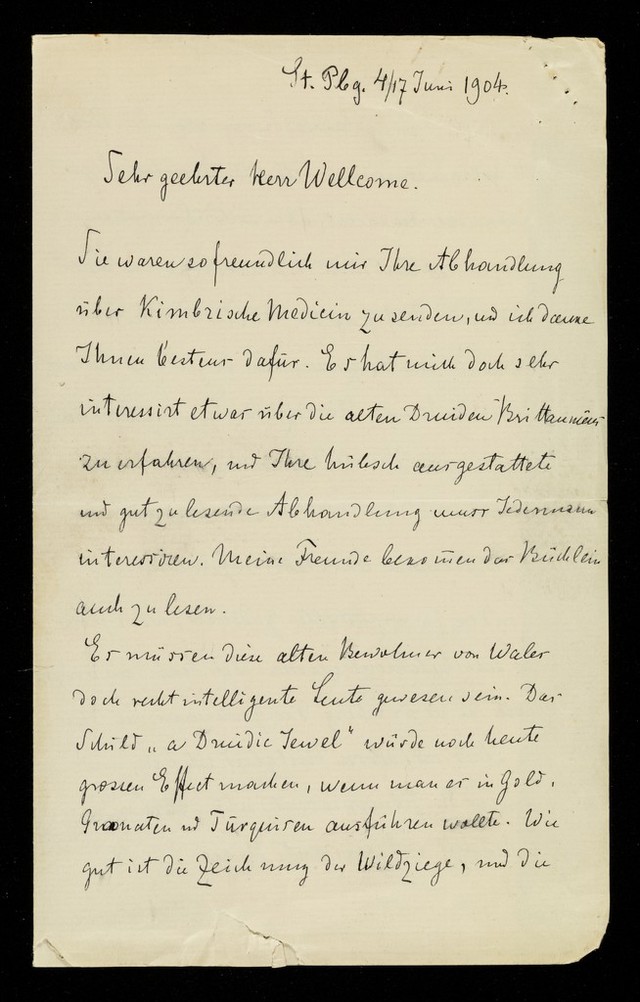 St. Pbg. 4/17 Juni 1904.
Sehr geehrter Herr Wellcome.
Sie waren so freundlich mir Ihre Abhandlung
über Kimbrische Medicin zu senden, und ich danke
Ihnen bestens dafür. Es hat mich doch sehr
interessirt etwas über die alten Druiden Brittanniens
zu erfahren, und Ihre hübsch ausgestattete
und gut zu lesende Abhandlung muss Jedermann
interessiren. Meine Freunde bekom̅en das Büchlein
auch zu lesen.
Es müssen diese alten Bewohner von Wales
doch recht intelligente Leute gewesen sein. Das
Schild „a Druidic Jewel" würde noch heute
grossen Effect machen, wenn man es in Gold,
Granaten und Turquisen ausführen wollte. Wie
gut ist die Zeichnung der Wildziege, und die